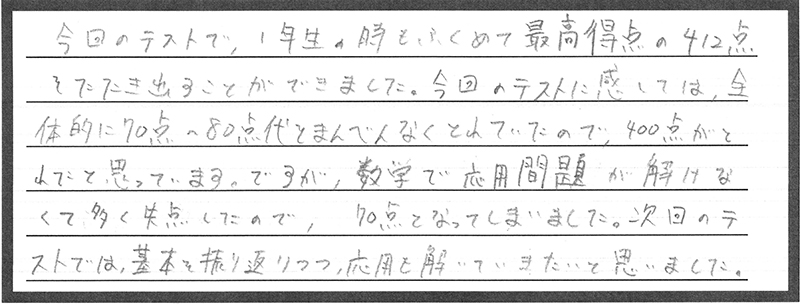 今回のテストで、1年生の時もふくめて最高得点の412点
をたたき出すことができました。今回のテストに感しては、全
体的に70点〜80点代とまんべんなくとれていたので、400点がと
れたと思っています。ですが、数学で応用問題が解けな
くて多く失点したので、70点となってしまいました。次回のテ
ストでは、基本を振り返りつつ、応用も解いていきたいと思いました。